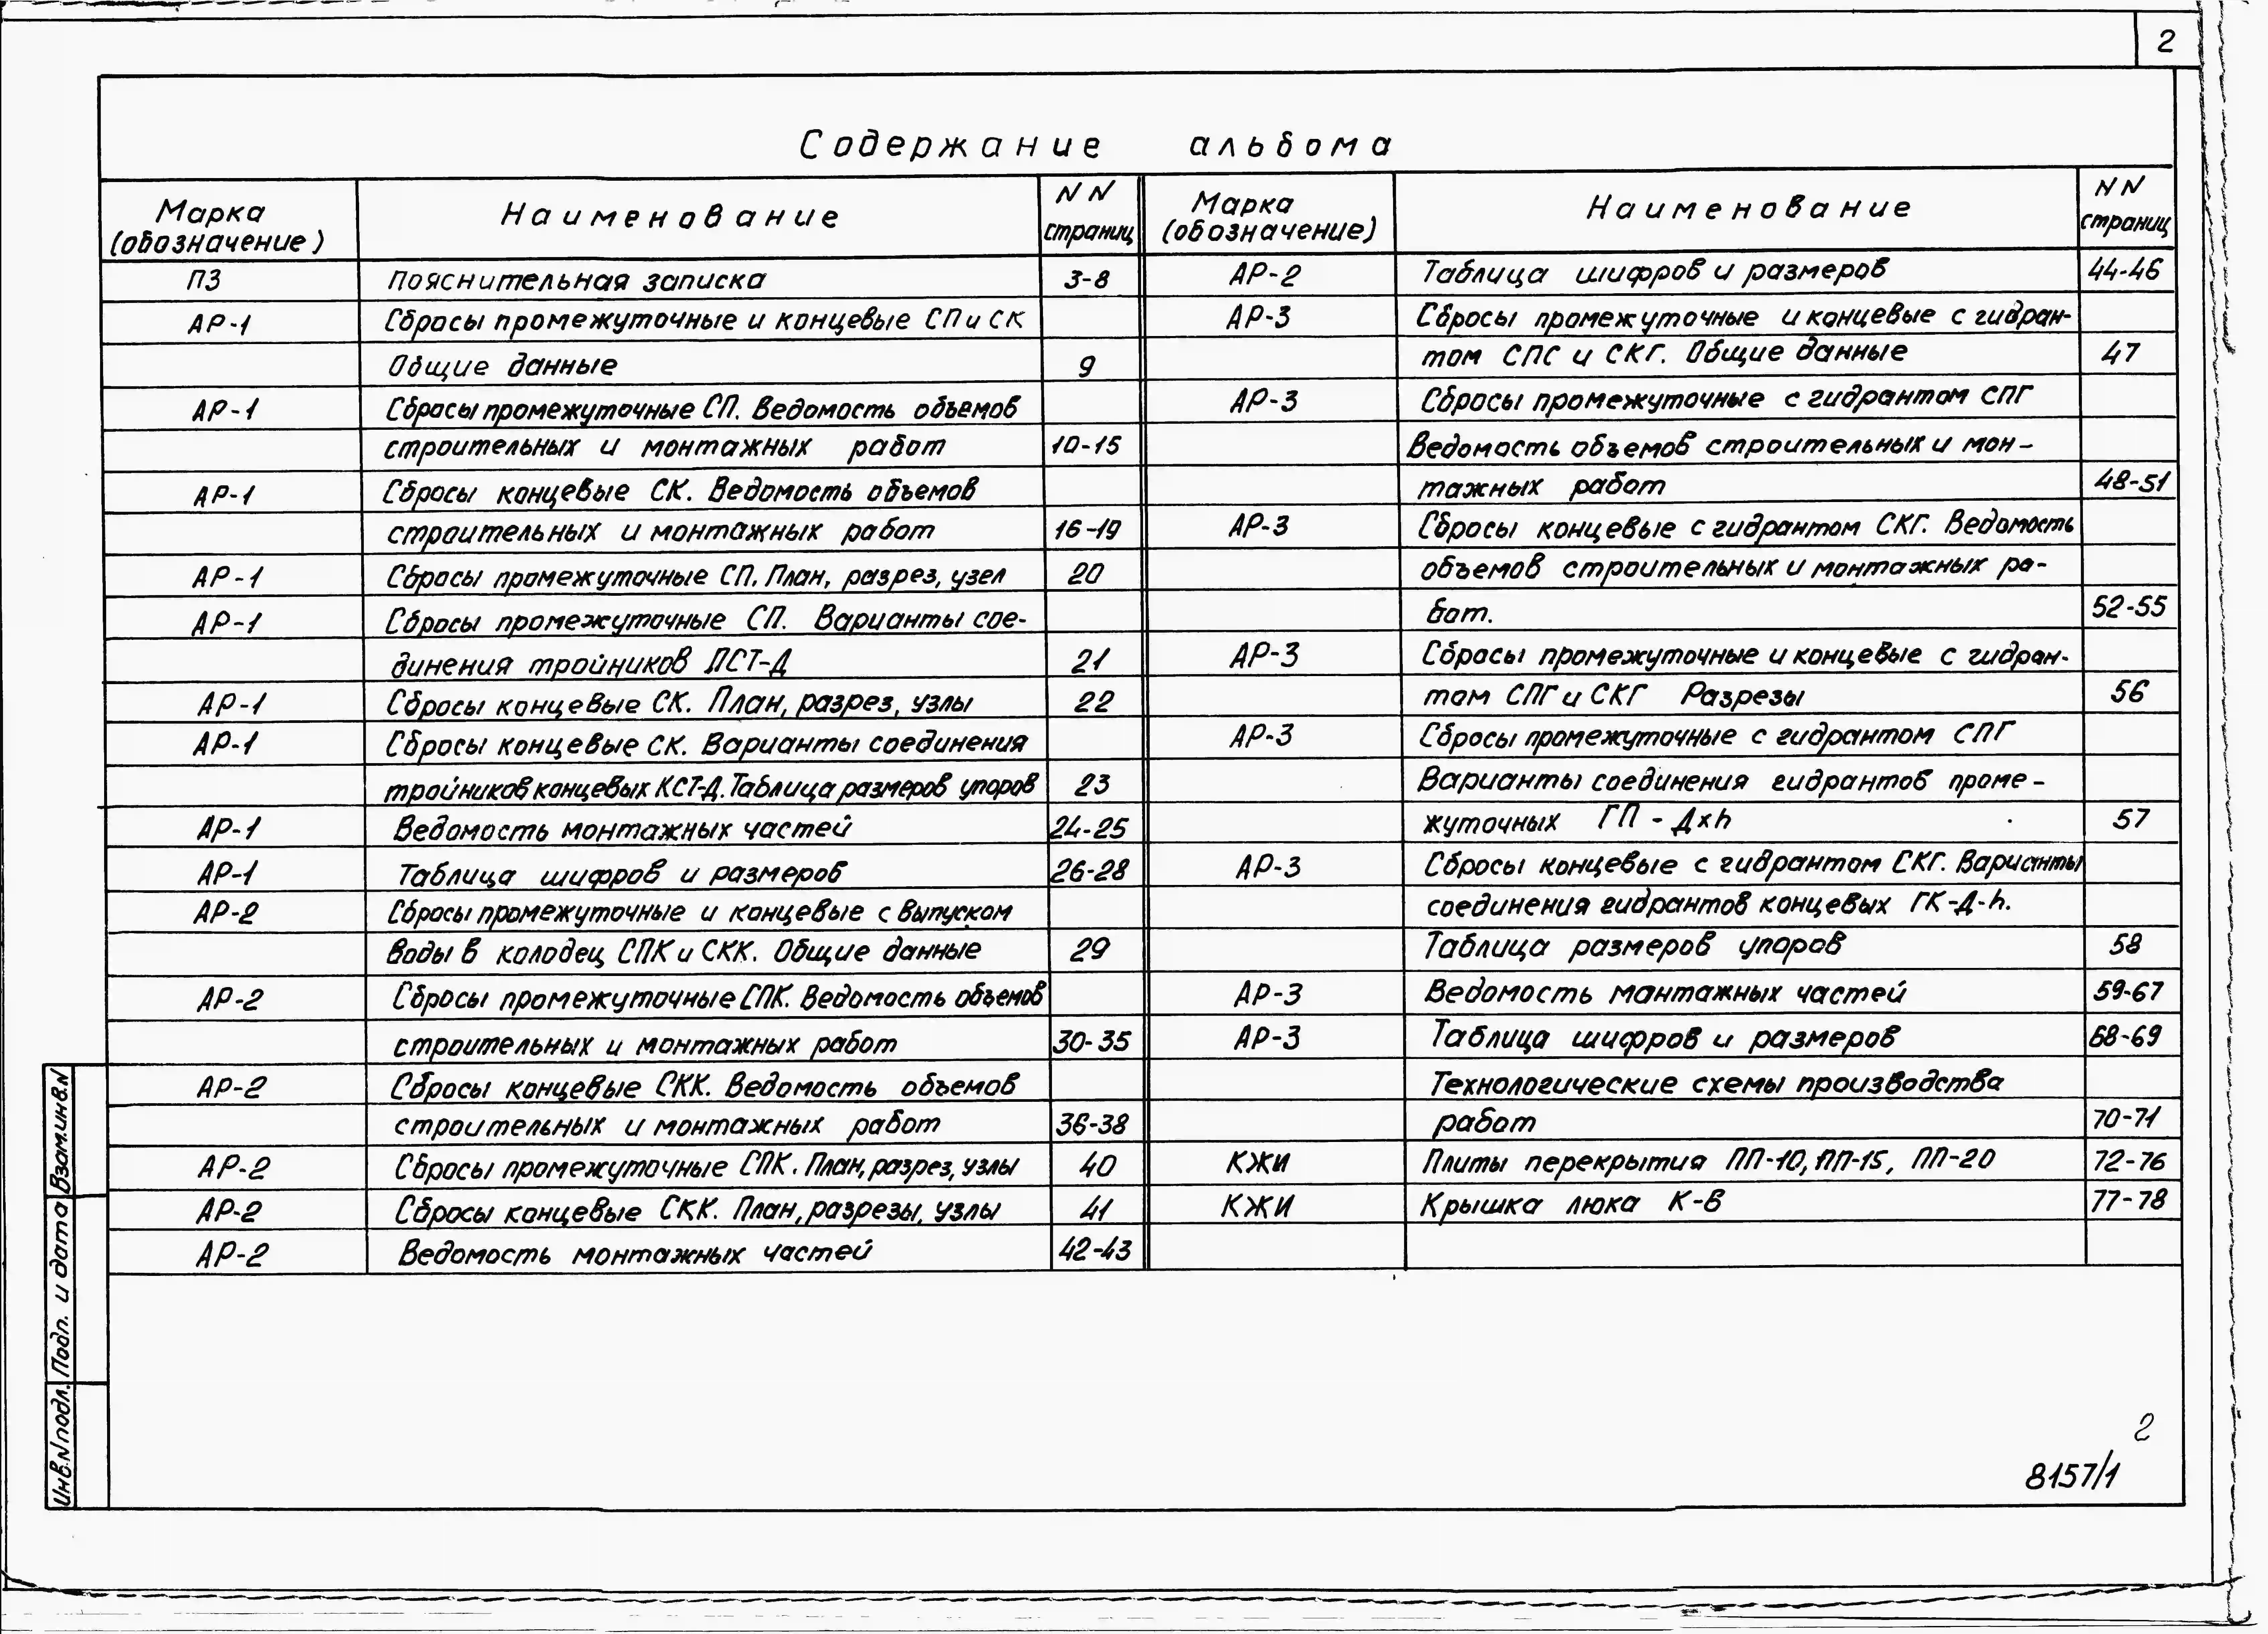 2
Содержание альбома
Марка (обозначение) Наименование NN страниц
ПЗ Пояснительная записка 3-8
АР-1 Сбросы промежуточные и концевые СП и СК
Общие данные 9
АР-1 Сбросы промежуточные СП. Ведомость объемов
строительных и монтажных работ 10-15
АР-1 Сбросы концевые СК. Ведомость объемов
строительных и монтажных работ 16-19
АР-1 Сбросы промежуточные СП. План, разрез, узел 20
АР-1 Сбросы промежуточные СП. Варианты сое-
динения тройников ПСТ-Д 21
АР-1 Сбросы концевые СК. План, разрез, узлы 22
АР-1 Сбросы концевые СК. Варианты соединения
тройников концевых КСТ-Д. Таблица размеров упоров 23
АР-1 Ведомость монтажных частей 24-25
АР-1 Таблица шифров и размеров 26-28
АР-2 Сбросы промежуточные и концевые с выпуском
воды в колодец СПК и СКК. Общие данные 29
АР-2 Сбросы промежуточные СПК. Ведомость объемов
строительных и монтажных работ 30-35
АР-2 Сбросы концевые СКК. Ведомость объемов
строительных и монтажных работ 36-38
АР-2 Сбросы промежуточные СПК. План, разрез, узлы 40
АР-2 Сбросы концевые СКК. План, разрезы, узлы 41
АР-2 Ведомость монтажных частей 42-43
Марка (обозначение) Наименование NN страниц
АР-2 Таблица шифров и размеров 44-46
АР-3 Сбросы промежуточные и концевые с гидран-
том СПС и СКГ. Общие данные 47
АР-3 Сбросы промежуточные с гидрантом СПГ
Ведомость объемов строительных и мон-
тажных работ 48-51
АР-3 Сбросы концевые с гидрантом СКГ. Ведомость
объемов строительных и монтажных ра-
бот. 52-55
АР-3 Сбросы промежуточные и концевые с гидран-
том СПГ и СКГ Разрезы 56
АР-3 Сбросы промежуточные с гидрантом СПГ
Варианты соединения гидрантов проме-
жуточных ГП - Дхh 57
АР-3 Сбросы концевые с гидрантом СКГ. Варианты
соединения гидрантов концевых ГК-Д-h.
Таблица размеров упоров 58
АР-3 Ведомость монтажных частей 59-67
АР-3 Таблица шифров и размеров 68-69
Технологические схемы производства
работ 70-71
КЖИ Плиты перекрытия ПП-10, ПП-15, ПП-20 72-76
КЖИ Крышка люка К-В 77-78
Взам.инв.N
Подп. и дата
Инв.N подл.
2
8157/1